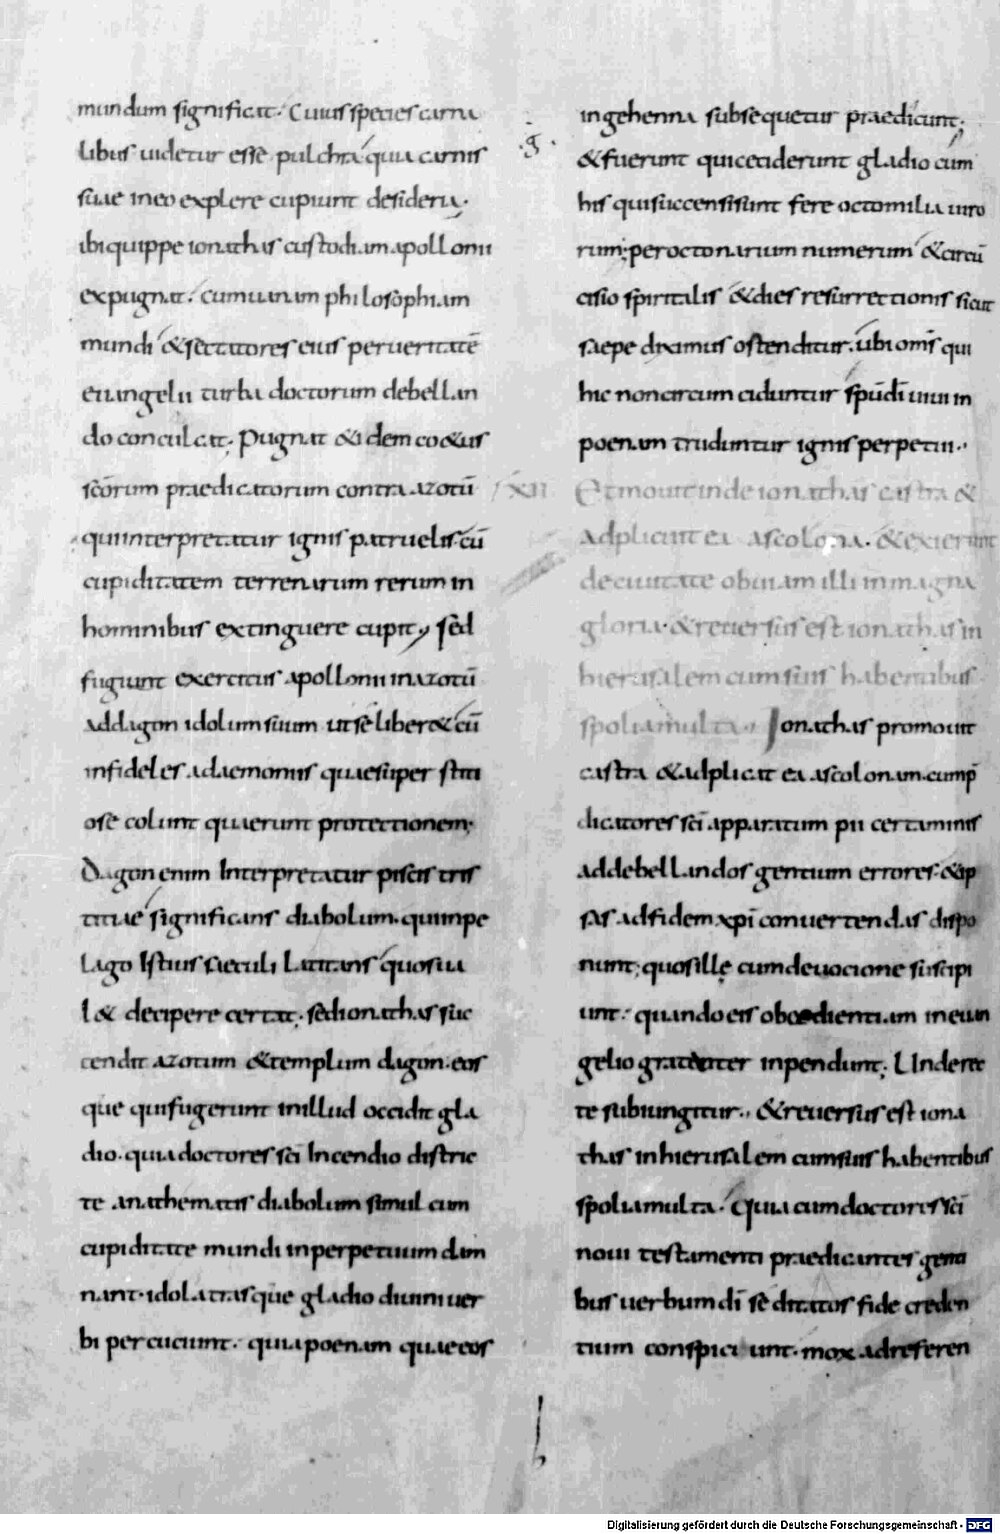 mundum significat. Cuius species carna
libus uidetur esse pulchra quia carnis
suae in eo explere cupiunt desideria.
ibi quippe ionathas custodiam apollonii
expugnat. cum uanam philosophiam
mundi & sectatores eius per ueritatē
euangelii turba doctorum debellan
do conculcat. Pugnat & idem coetus
scōrum praedicatorum contra azotū
qui interpretatur ignis patruelis cū
cupiditatem terrenarum rerum in
hominibus extinguere cupit, sed
fugiunt exercitus apollonii in azotū
ad dagon idolum suum ut se liber& cū
infideles a daemoniis quae super stiti
ose colunt quaerunt protectionem;
Dagon enim Interpretatur piscis tris
titiae significans diabolum. qui in pe
lago Istius saeculi Latitans quos ua
l& decipere certat. sed ionathas suc
cendit azotum & templum dagon. eos
que qui fugerunt in illud occidit gla
dio. quia doctores sc̄i Incendio distric
te anathematis diabolum simul cum
cupiditate mundi in perpetuum dam
nant. idolatrasque gladio diuini uer
bi percuciunt. quia poenam quae eos
.g.
in gehenna subsequetur praedicunt;
& fuerunt qui ceciderunt gladio cum
his qui succensi sunt fere octo milia uiro
rum; per octonarium numerum & circū
cisio spiritalis & dies resurrectionis sicut
saepe diximus ostenditur. ubi om̄s qui
hic non circumciduntur sp̄u dī uiui in
poenam truduntur ignis perpetui..
XII Et mouit inde ionathas castra &
adplicuit ea ascolona. & exierunt
de ciuitate obuiam illi in magna
gloria. & reuersus est ionathas in
hierusalem cum suis habentibus
spolia multa.. Ionathas promouit
castra & adplicat ea ascolonam. cum p̄
dicatores sc̄i apparatum pii certaminis
ad debellandos gentium errores. & ip
sas ad fidem xp̄i conuertendas dispo
nunt; quos illę cum deuocione suscipi
unt. quando eis obo&dientiam in euan
gelio gratanter inpendunt; Unde rec
te subiungitur.. & reuersus est iona
thas in hierusalem cum suis habentibus
spolia multa. Quia cum doctores sc̄i
noui testamenti praedicantes genti
bus uerbum dī se ditatos fide creden
tium conspiciunt. mox ad referen